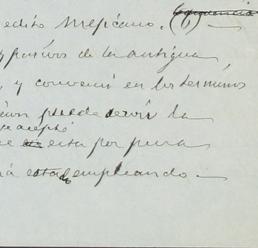 edito Mexicano. (6) —
y pasivos de la antigua
, y convení en los términos
puede servir la
se aceptó
esta por pura
empleando —